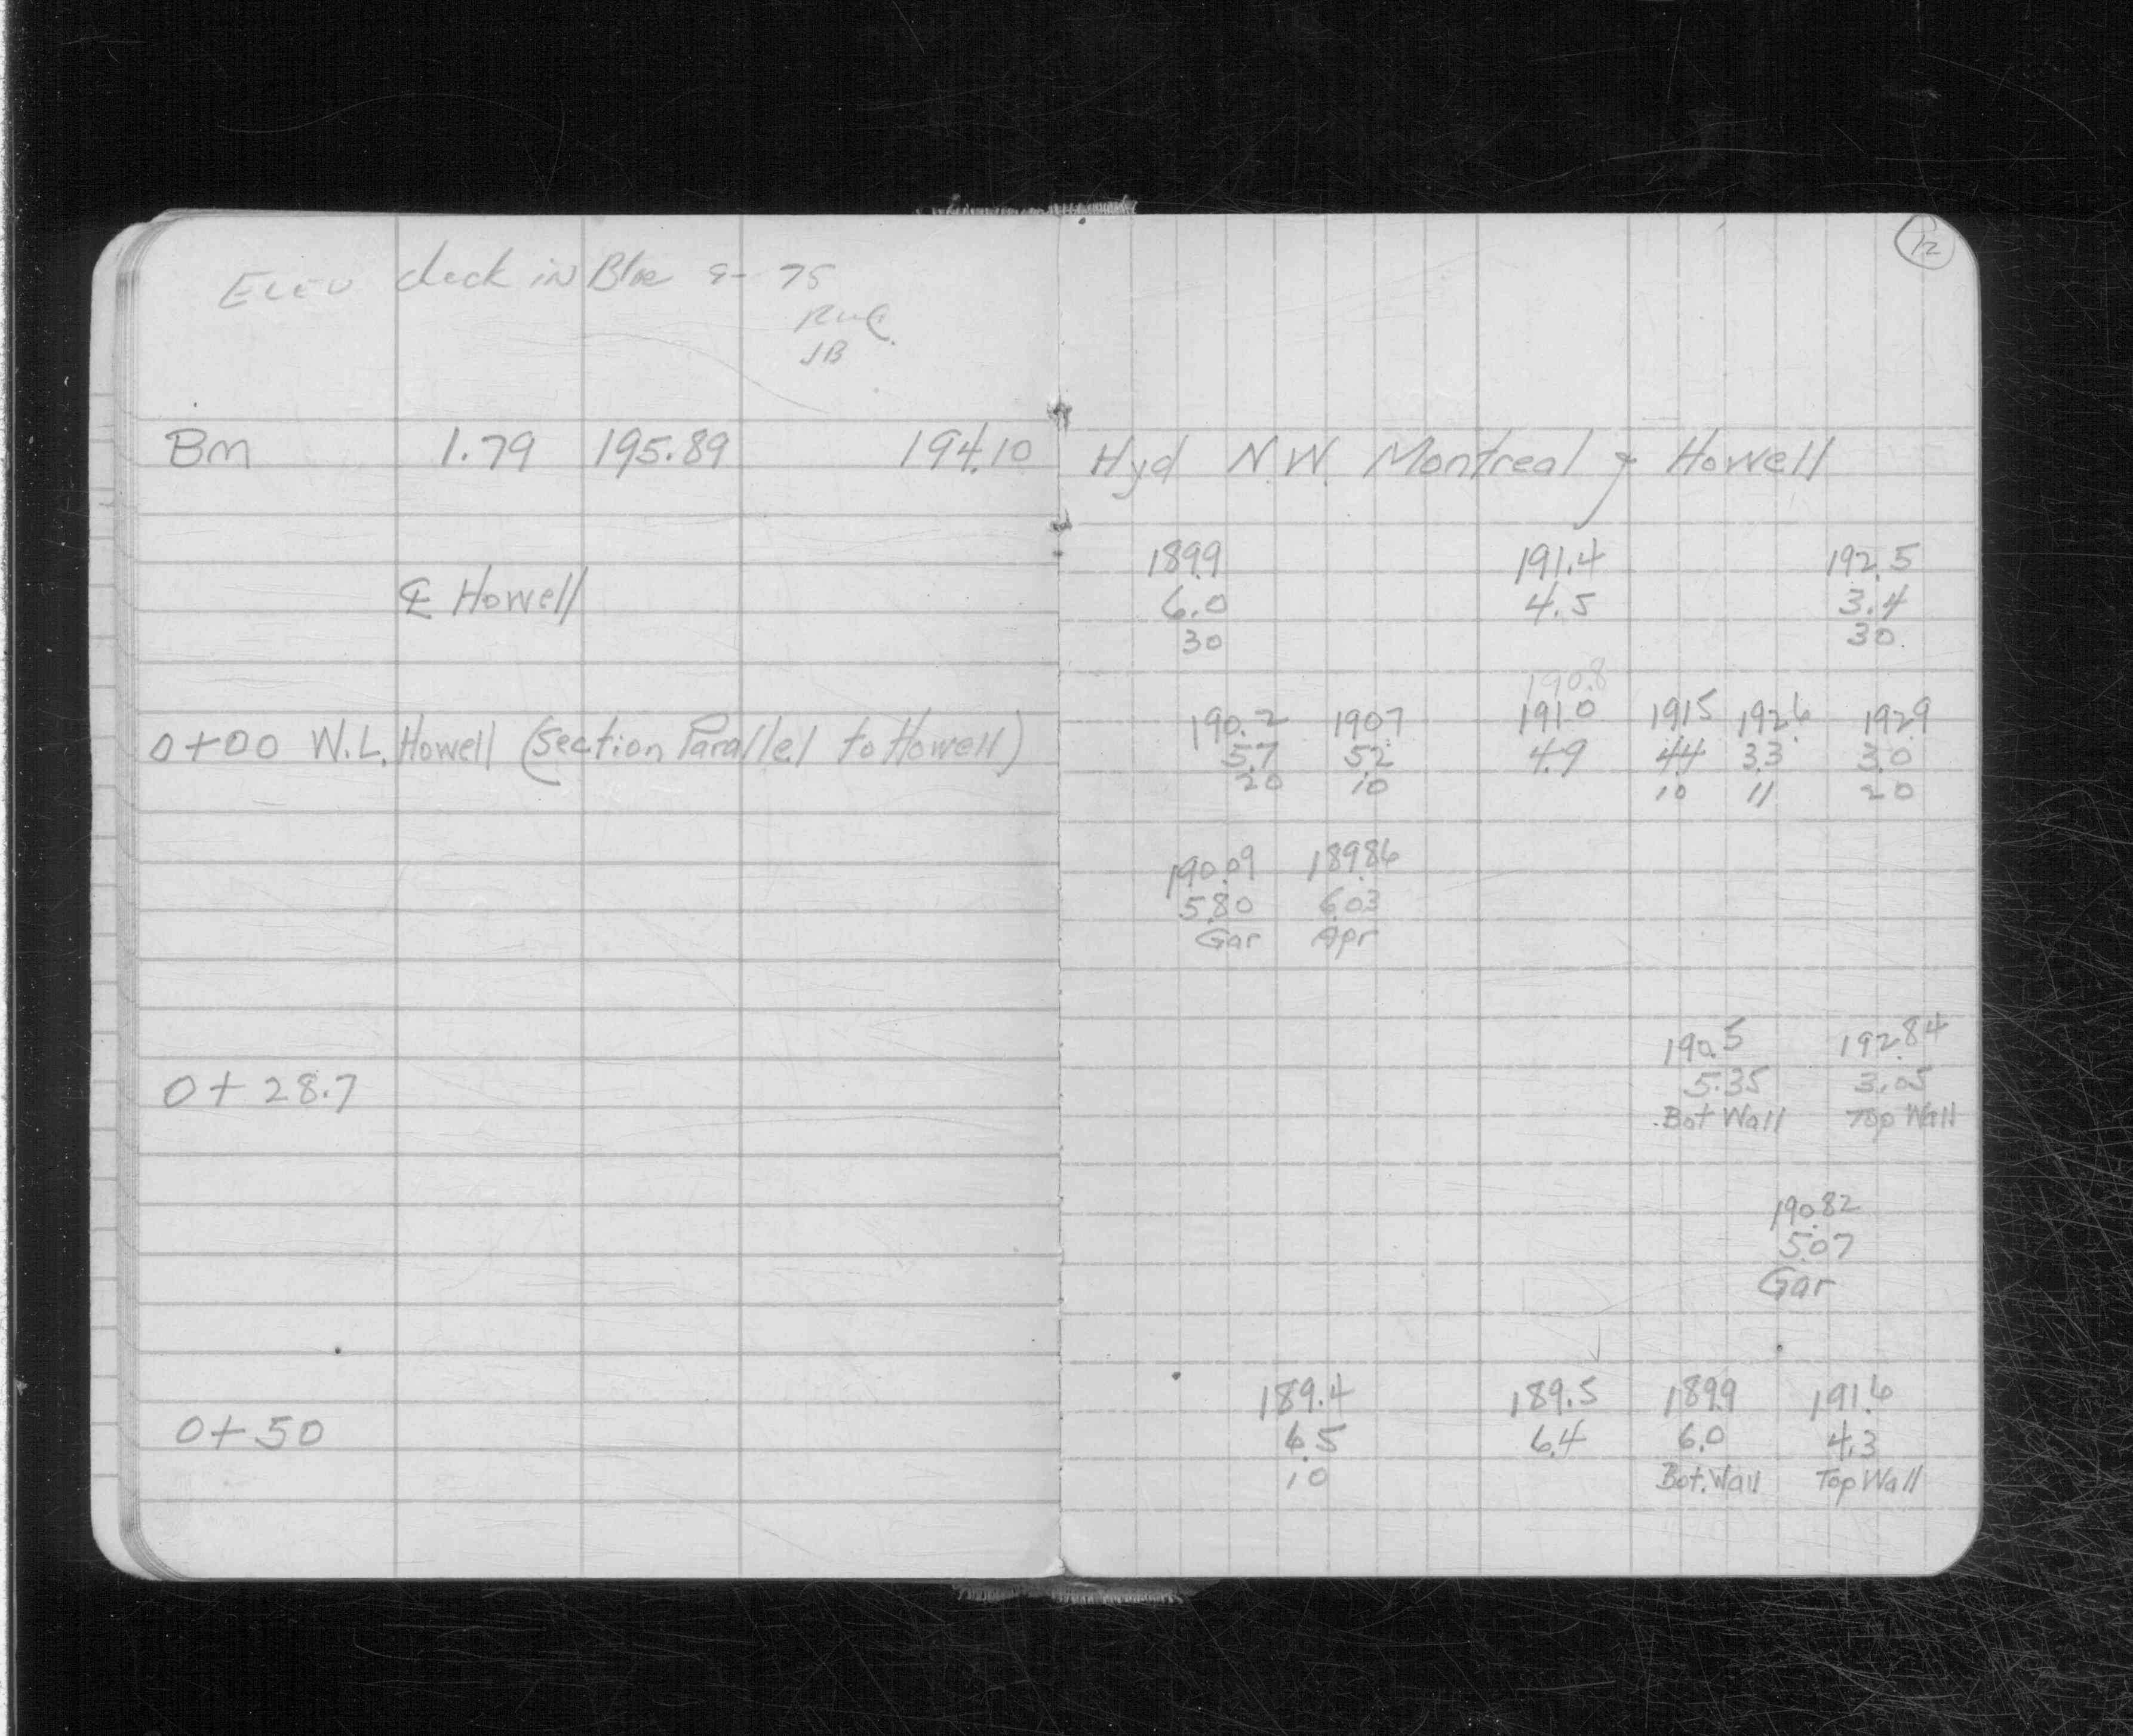 Elev check in Blue 9-75
JB
12
BM 1.79 195.89 194.10 Hyd N.W. Montreal & Howell
189.9 191.4 192.5
℄ Howell 6.0 4.5 3.4
30 30
190.8
190.2 190.7 191.0 191.5 192.6 192.9
0+00 W.L. Howell (Section Parallel to Howell) 5.7 5.2 4.9 4.4 3.3 3.0
20 10 10 11 20
190.09 189.86
5.80 6.03
Gar Apr
190.5 192.84
0+28.7 5.35 3.05
Bot Wall Top Wall
190.82
5.07
Gar
189.4 189.5 189.9 191.6
0+50 6.5 6.4 6.0 4.3
10 Bot. Wall Top Wall